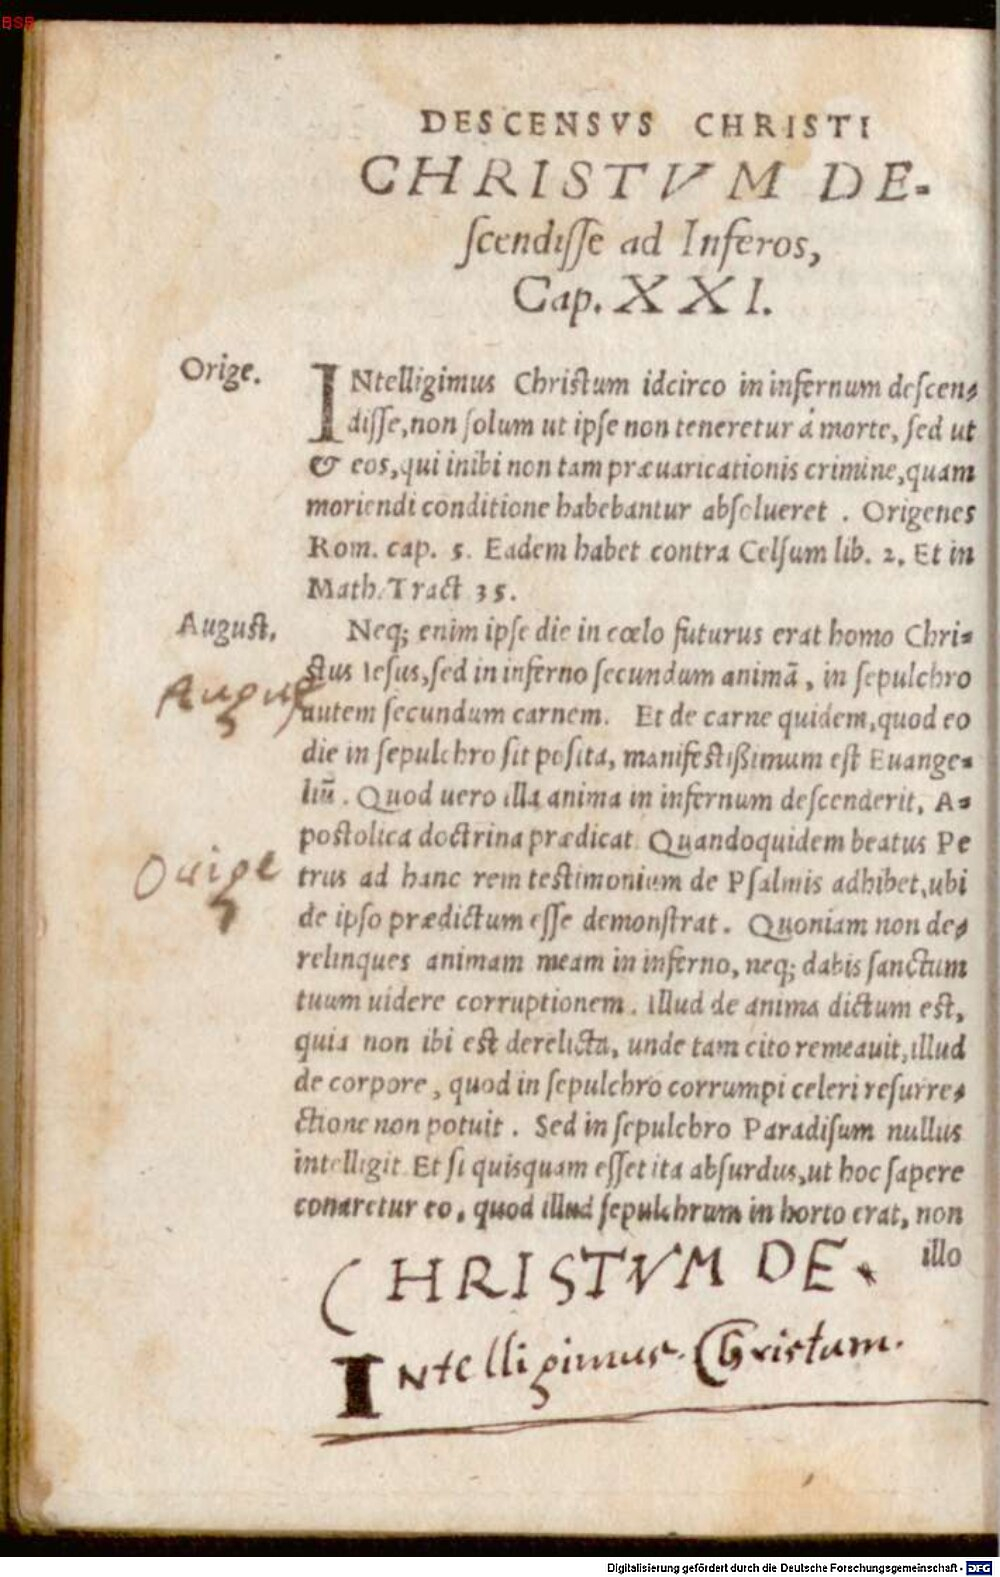 BSB
DESCENSVS CHRISTI
CHRISTVM DE-
ſcendiſſe ad Inferos,
Cap. XXI.
Orige.
INtelligimus Chriſtum idcirco in infernum deſcen-
diſſe, non ſolum ut ipſe non teneretur á morte, ſed ut
& eos, qui inibi non tam præuaricationis crimine, quam
moriendi conditione habebantur abſolueret . Origenes
Rom. cap. 5. Eadem habet contra Celſum lib. 2. Et in
Math. Tract 35.
August.
Neq; enim ipſe die in cœlo futurus erat homo Chri-
ſtus Ieſus, ſed in inferno ſecundum animā, in ſepulchro
Auguſ
autem ſecundum carnem. Et de carne quidem, quod eo
die in ſepulchro ſit poſita, manifeſtißimum eſt Euange-
liū. Quod uero illa anima in infernum deſcenderit, A-
poſtolica doctrina prædicat. Quandoquidem beatus Pe
Orige
trus ad hanc rem teſtimonium de Pſalmis adhibet, ubi
de ipſo prædictum eſſe demonſtrat. Quoniam non de-
relinques animam meam in inferno, neq; dabis ſanctum
tuum uidere corruptionem. Illud de anima dictum eſt,
quia non ibi eſt derelicta, unde tam cito remeauit, illud
de corpore, quod in ſepulchro corrumpi celeri reſurre-
ctione non potuit. Sed in ſepulchro Paradiſum nullus
intelligit. Et ſi quisquam eſſet ita abſurdus, ut hoc ſapere
conaretur eo, quod illud ſepulchrum in horto erat, non
illo
CHRISTVM DE.
INtelligimus. Christum.
Digitalisierung gefördert durch die Deutsche Forschungsgemeinschaft - DFG